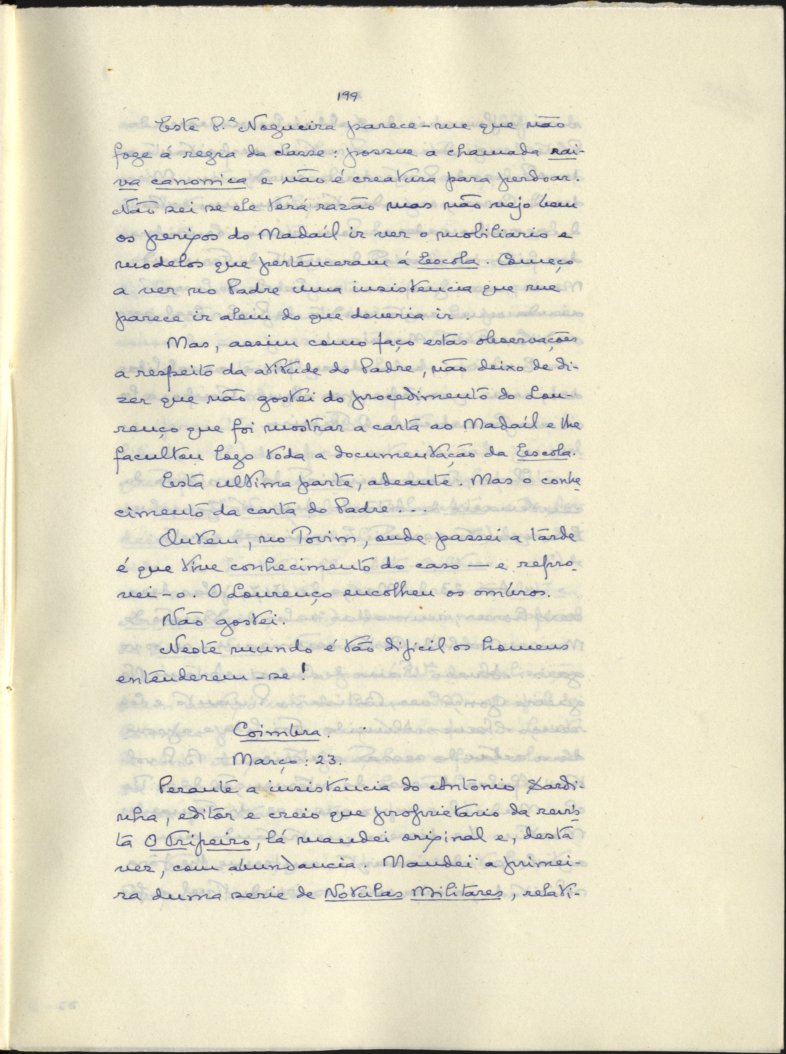 199
Este P.e Nogueira parece-me que não
foge á regra da classe: possue a chamada rai-
va canonica e não é creatura para perdoar.
Não sei se ele terá razão mas não vejo bem
os perigos do Madaíl ir ver o mobiliario e
modelos que pertenceram á Escola. Começo
a ver no Padre uma insistencia que me
parece ir alem do que deveria ir..
Mas, assim como faço estas observações
a respeito da atitude do Padre, não deixo de di-
zer que não gostei do procedimento do Lou-
renço que foi mostrar a carta ao Madaíl e lhe
facultou logo toda a documentação da Escola.
Esta ultima parte, adeante. Mas o conhe
cimento da carta do Padre...
Ontem, no Tovim, onde passei a tarde
é que tive conhecimento do caso — e repro-
vei-o. O Lourenço encolheu os ombros.
Não gostei.
Neste mundo é tão dificil os homens
entenderem-se!
Coimbra.
Março: 23.
Perante a insistencia do Antonio Sardi-
nha, editor e creio que proprietario da revis
ta O Tripeiro, lá mandei original e, desta
vez, com abundancia. Mandei a primei-
ra duma serie de Notulas Militares, relati-